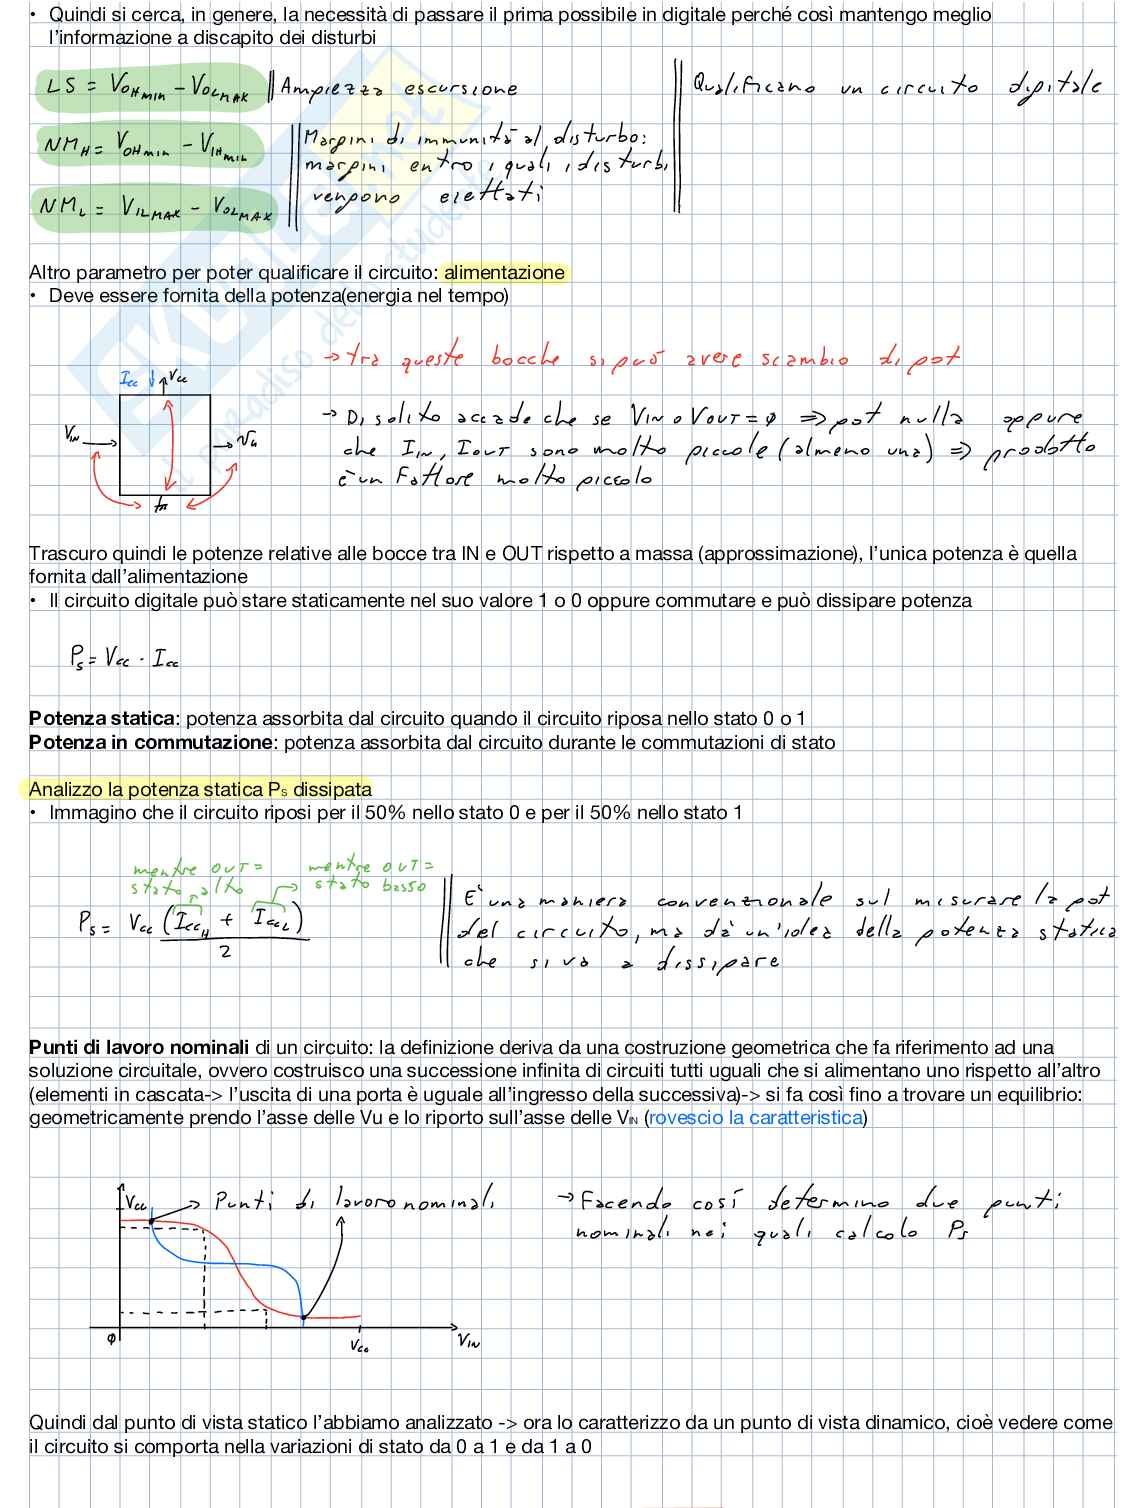 • Quindi si cerca, in genere, la necessità di passare il prima possibile in digitale perché così mantengo meglio
l'informazione a discapito dei disturbi
LS = VOHMIN - VOLMAX || Ampiezza escursione || Qualificano un circuito digitale
NMH = VOHMIN - VIHMIN || Margini di immunità al disturbo:
margini entro i quali i disturbi
NML = VILMAX - VOLMAX vengono
Altro parametro per poter qualificare il circuito: alimentazione
• Deve essere fornita della potenza(energia nel tempo)
→ tra queste bocche si può avere scambio di pot
Icc ↓ ↑ Vcc
→ Di solito accade che se VIN o VOUT = φ ⇒ pot nulla oppure
VIN → → Vu
che IIN, IOUT sono molto piccole (almeno una) ⇒ prodotto
è un fattore molto piccolo
Trascuro quindi le potenze relative alle bocce tra IN e OUT rispetto a massa (approssimazione), l'unica potenza è quella
fornita dall'alimentazione
• Il circuito digitale può stare staticamente nel suo valore 1 o 0 oppure commutare e può dissipare potenza
Ps = Vcc · Icc
Potenza statica: potenza assorbita dal circuito quando il circuito riposa nello stato 0 o 1
Potenza in commutazione: potenza assorbita dal circuito durante le commutazioni di stato
Analizzo la potenza statica Ps dissipata
• Immagino che il circuito riposi per il 50% nello stato 0 e per il 50% nello stato 1
mentre OUT = stato alto
mentre OUT = stato basso
Ps = Vcc (IccH + IccL) / 2
È una maniera convenzionale sul misurare la pot
del circuito, ma dà un'idea della potenza statica
che si va a dissipare
Punti di lavoro nominali di un circuito: la definizione deriva da una costruzione geometrica che fa riferimento ad una
soluzione circuitale, ovvero costruisco una successione infinita di circuiti tutti uguali che si alimentano uno rispetto all'altro
(elementi in cascata-> l'uscita di una porta è uguale all'ingresso della successiva)-> si fa così fino a trovare un equilibrio:
geometricamente prendo l'asse delle Vu e lo riporto sull'asse delle VIN (rovescio la caratteristica)
Vcc → Punti di lavoro nominali
→ Facendo così determino due punti
nominali nei quali calcolo Ps
φ Vcc VIN
Quindi dal punto di vista statico l'abbiamo analizzato -> ora lo caratterizzo da un punto di vista dinamico, cioè vedere come
il circuito si comporta nella variazioni di stato da 0 a 1 e da 1 a 0